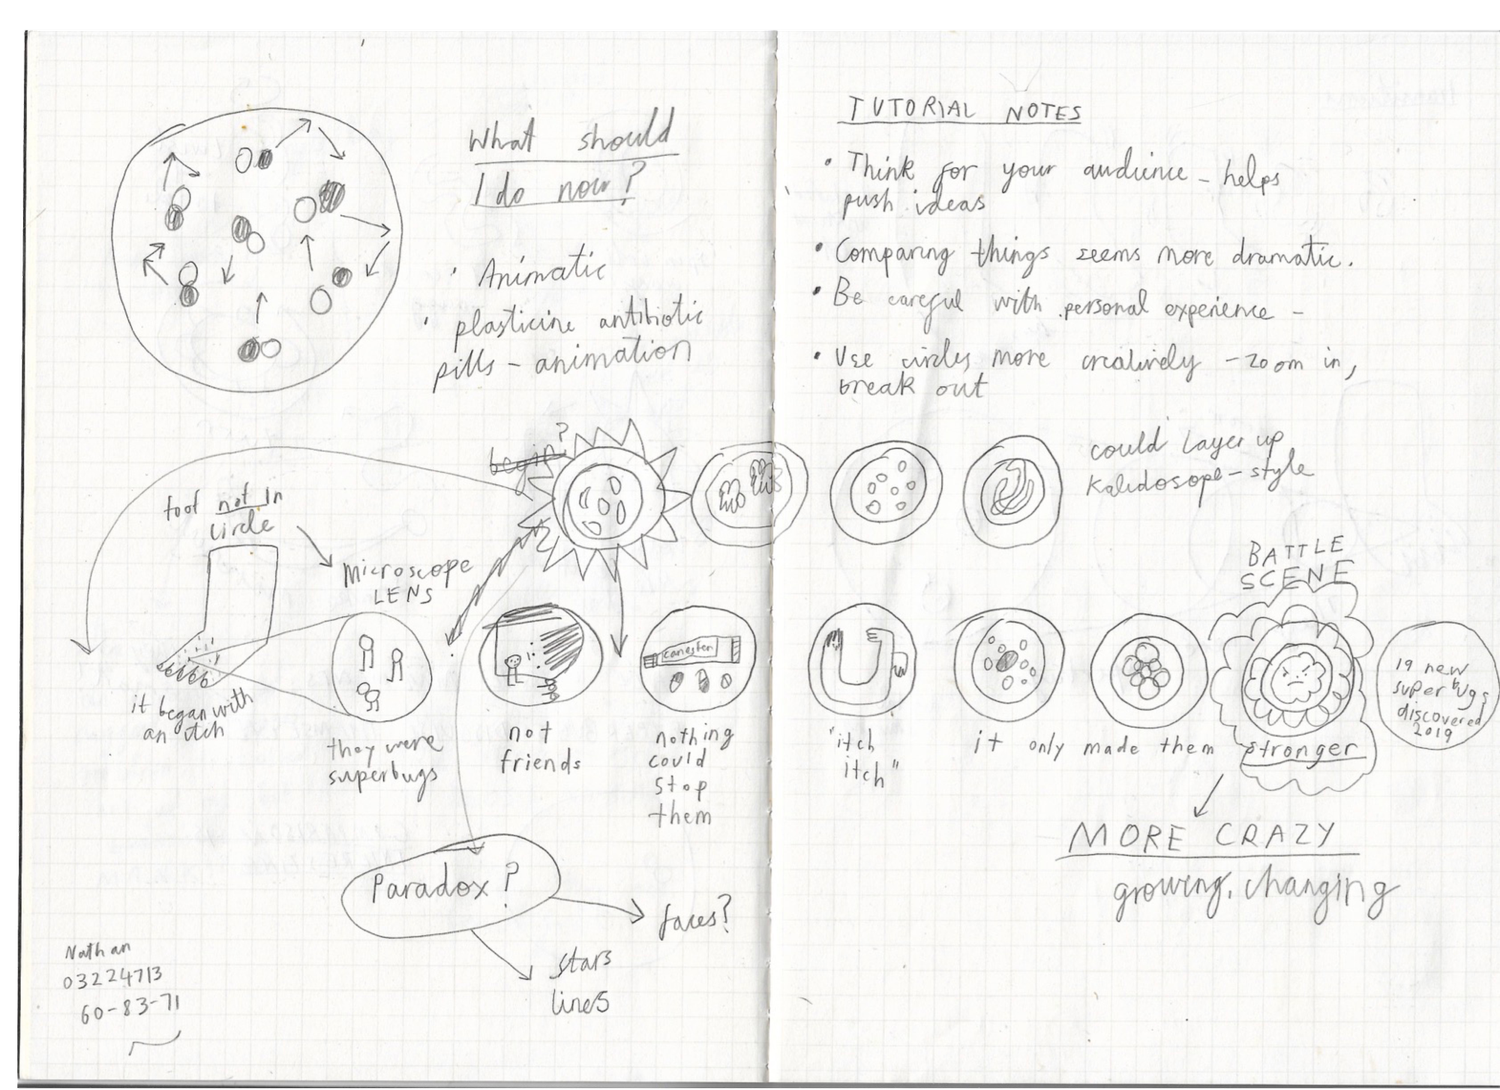 What should
I do now?
· Animatic
· plasticine antibiotic
pills - animation
begin?
foot not in
circle
MICROSCOPE
LENS
it began with
an itch
they were
superbugs
not
friends
canesten
nothing
could
stop
them
Paradox?
faces?
stars
lines
Nathan
03224713
60-83-71
TUTORIAL NOTES
· Think for your audience - helps
push ideas
· Comparing things seems more dramatic.
· Be careful with personal experience -
· Use circles more creatively - zoom in,
break out
could layer up
Kaleidosope-style
"itch
itch"
it only made them stronger
BATTLE
SCENE
19 new
superbugs
discovered
2019
MORE CRAZY
growing, changing